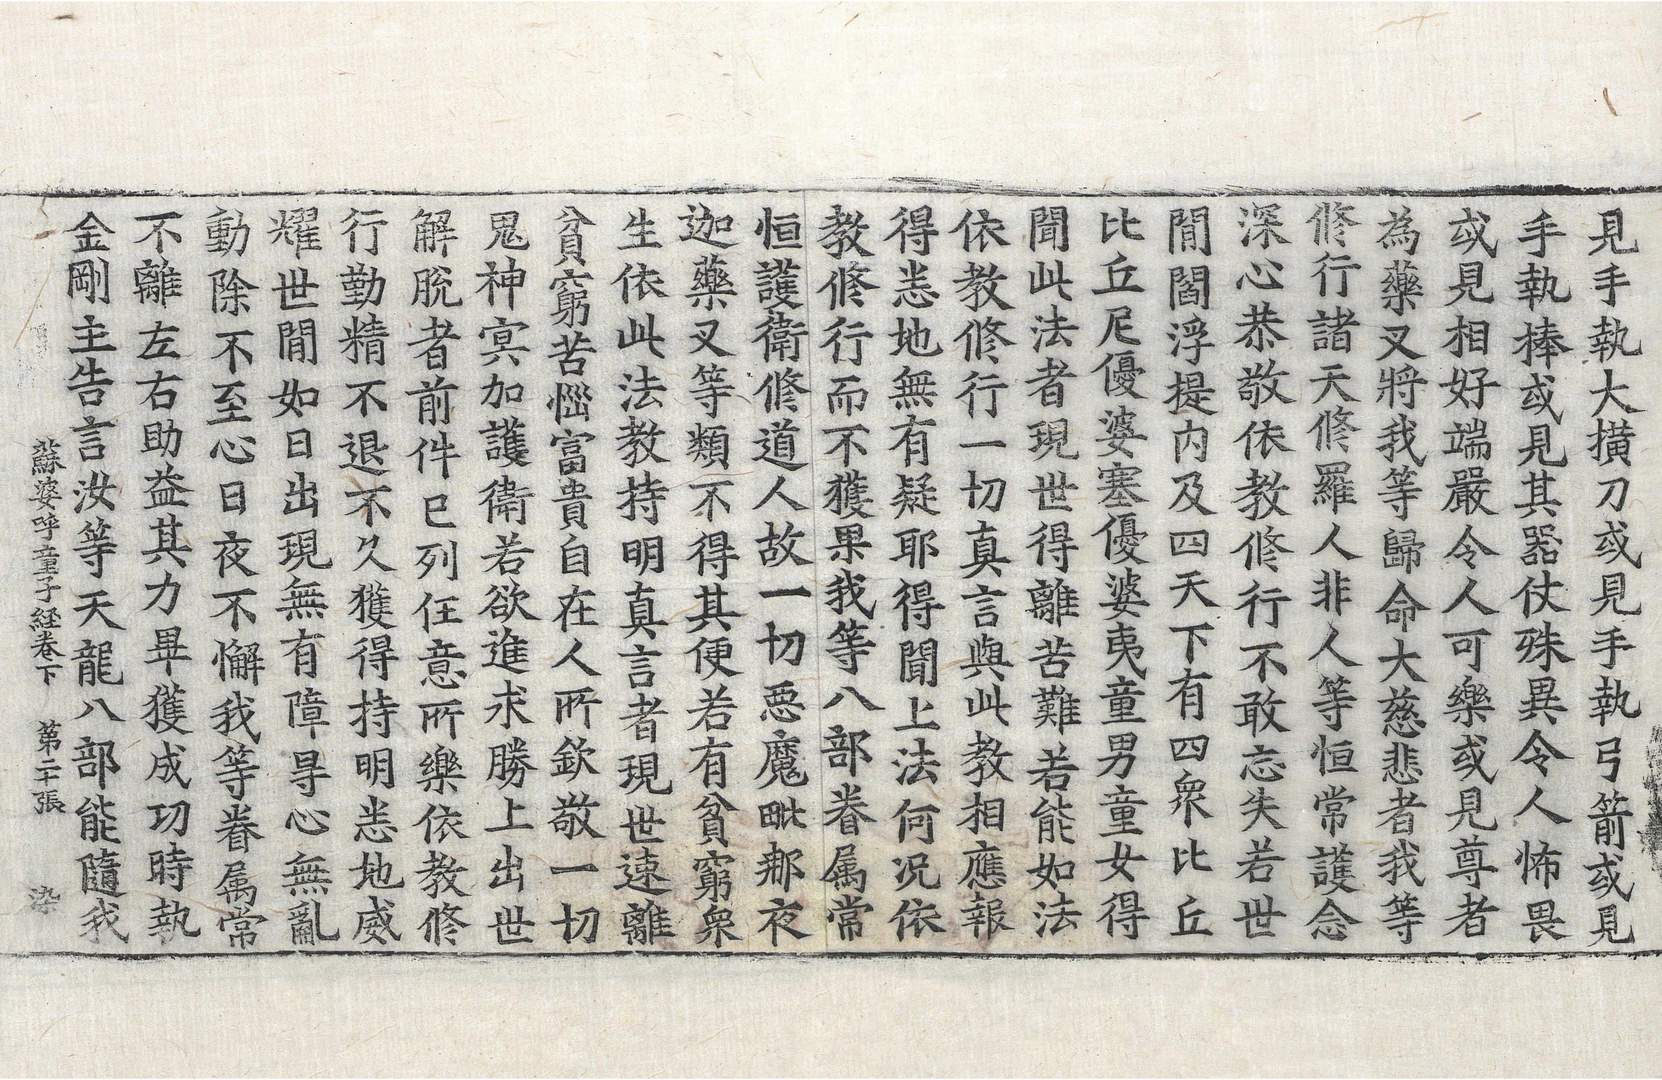 見手執大撗刀或見手執弓箭或見
手執棒或見其器仗殊異令人怖畏
或見相好端嚴令人可樂或見尊者
為藥叉將我等歸命大慈悲者我等
修行諸天修羅人非人等恒常護念
深心恭敬依教修行不敢忘失若世
間閻浮提內及四天下有四衆比丘
比丘尼優婆塞優婆夷童男童女得
聞此法者現世得離苦難若能如法
依教修行一切真言與此教相應報
得悉地無有疑耶得聞上法何况依
教修行而不獲果我等八部眷属常
恒護衛修道人故一切惡魔毗那夜
迦藥叉等類不得其便若有貧窮衆
生依此法教持明真言者現世速離
貧窮苦惱富貴自在人所欽敬一切
鬼神冥加護衛若欲進求勝上出世
解脫者前件已列任意所樂依教修
行勤精不退不久獲得持明悉地威
耀世間如日出現無有障导心無亂
動除不至心日夜不懈我等眷属常
不離左右助益其力畢獲成功時執
金剛主告言汝等天龍八部能隨我
蘇婆呼童子経卷下 第二十張 染